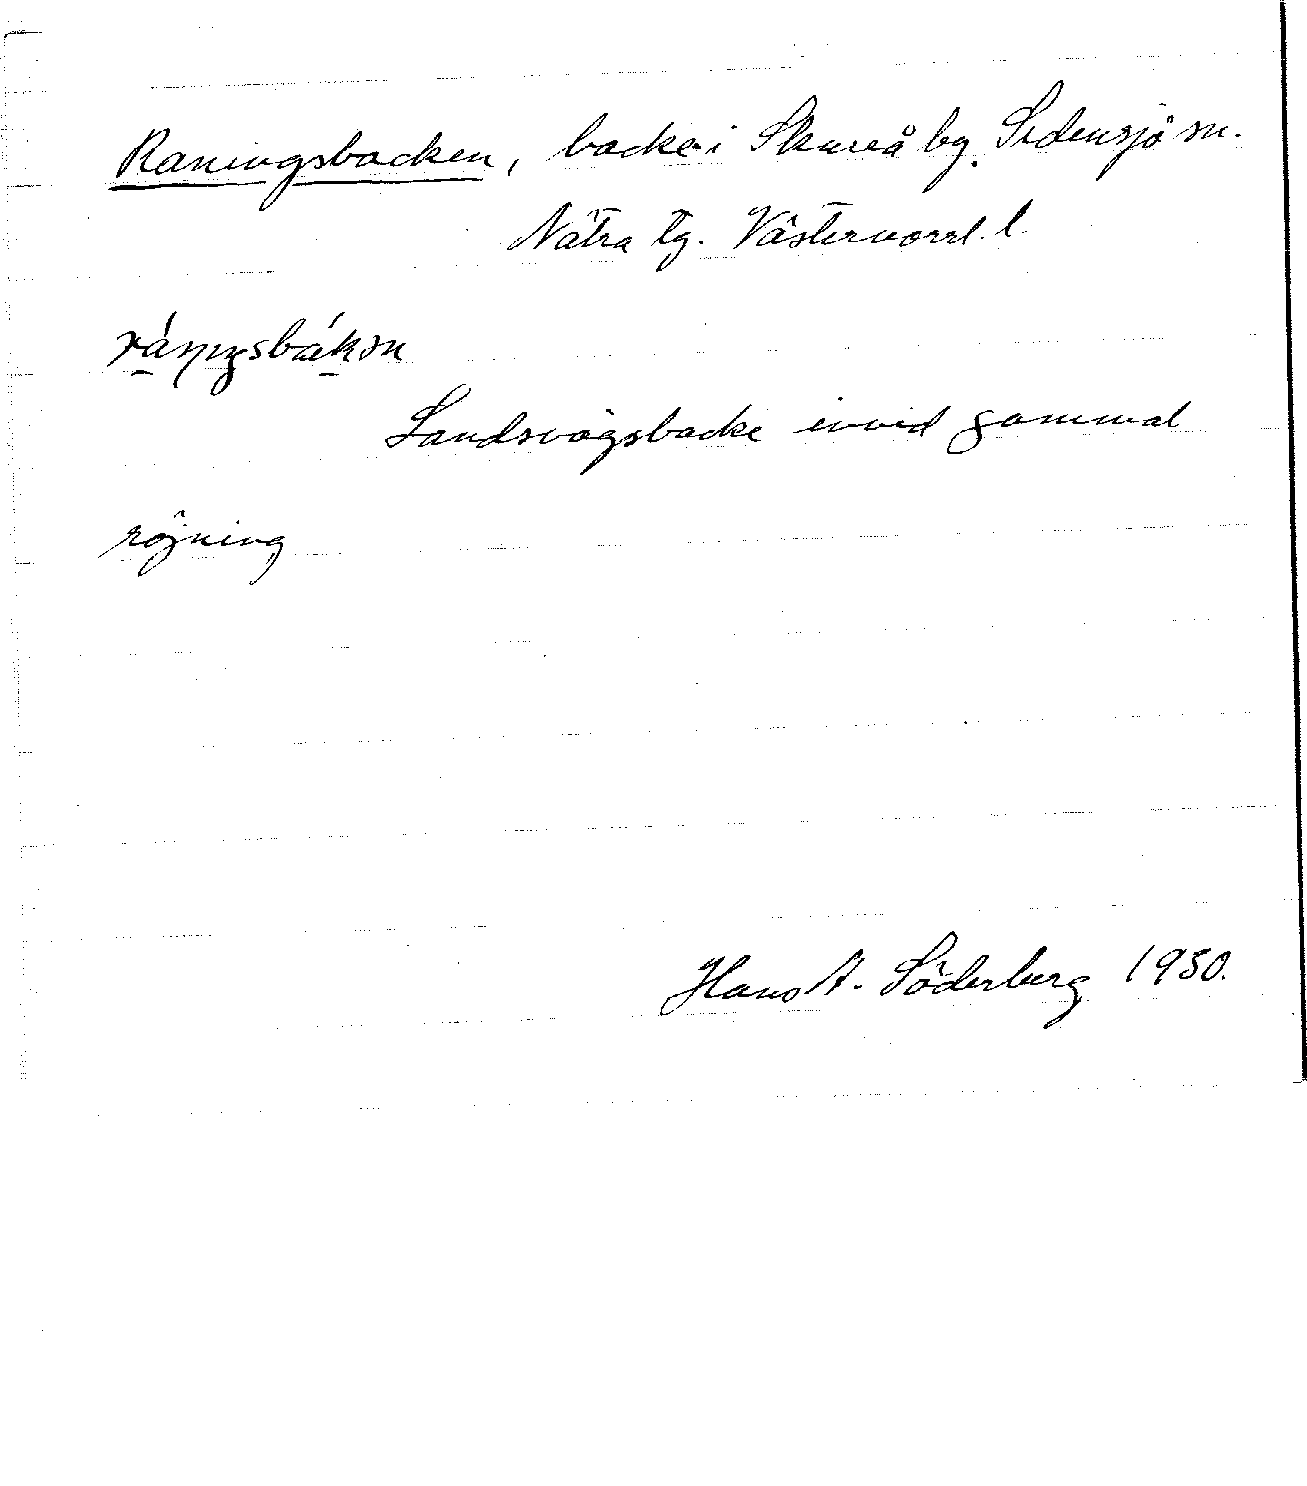 Raningsbacken, backe i Skureå by. Sidensjö sn.
Nätra tg. Västernorrl. l
Landsvägsbacke invid gammal
röjning
Hans A. Söderberg 1950.